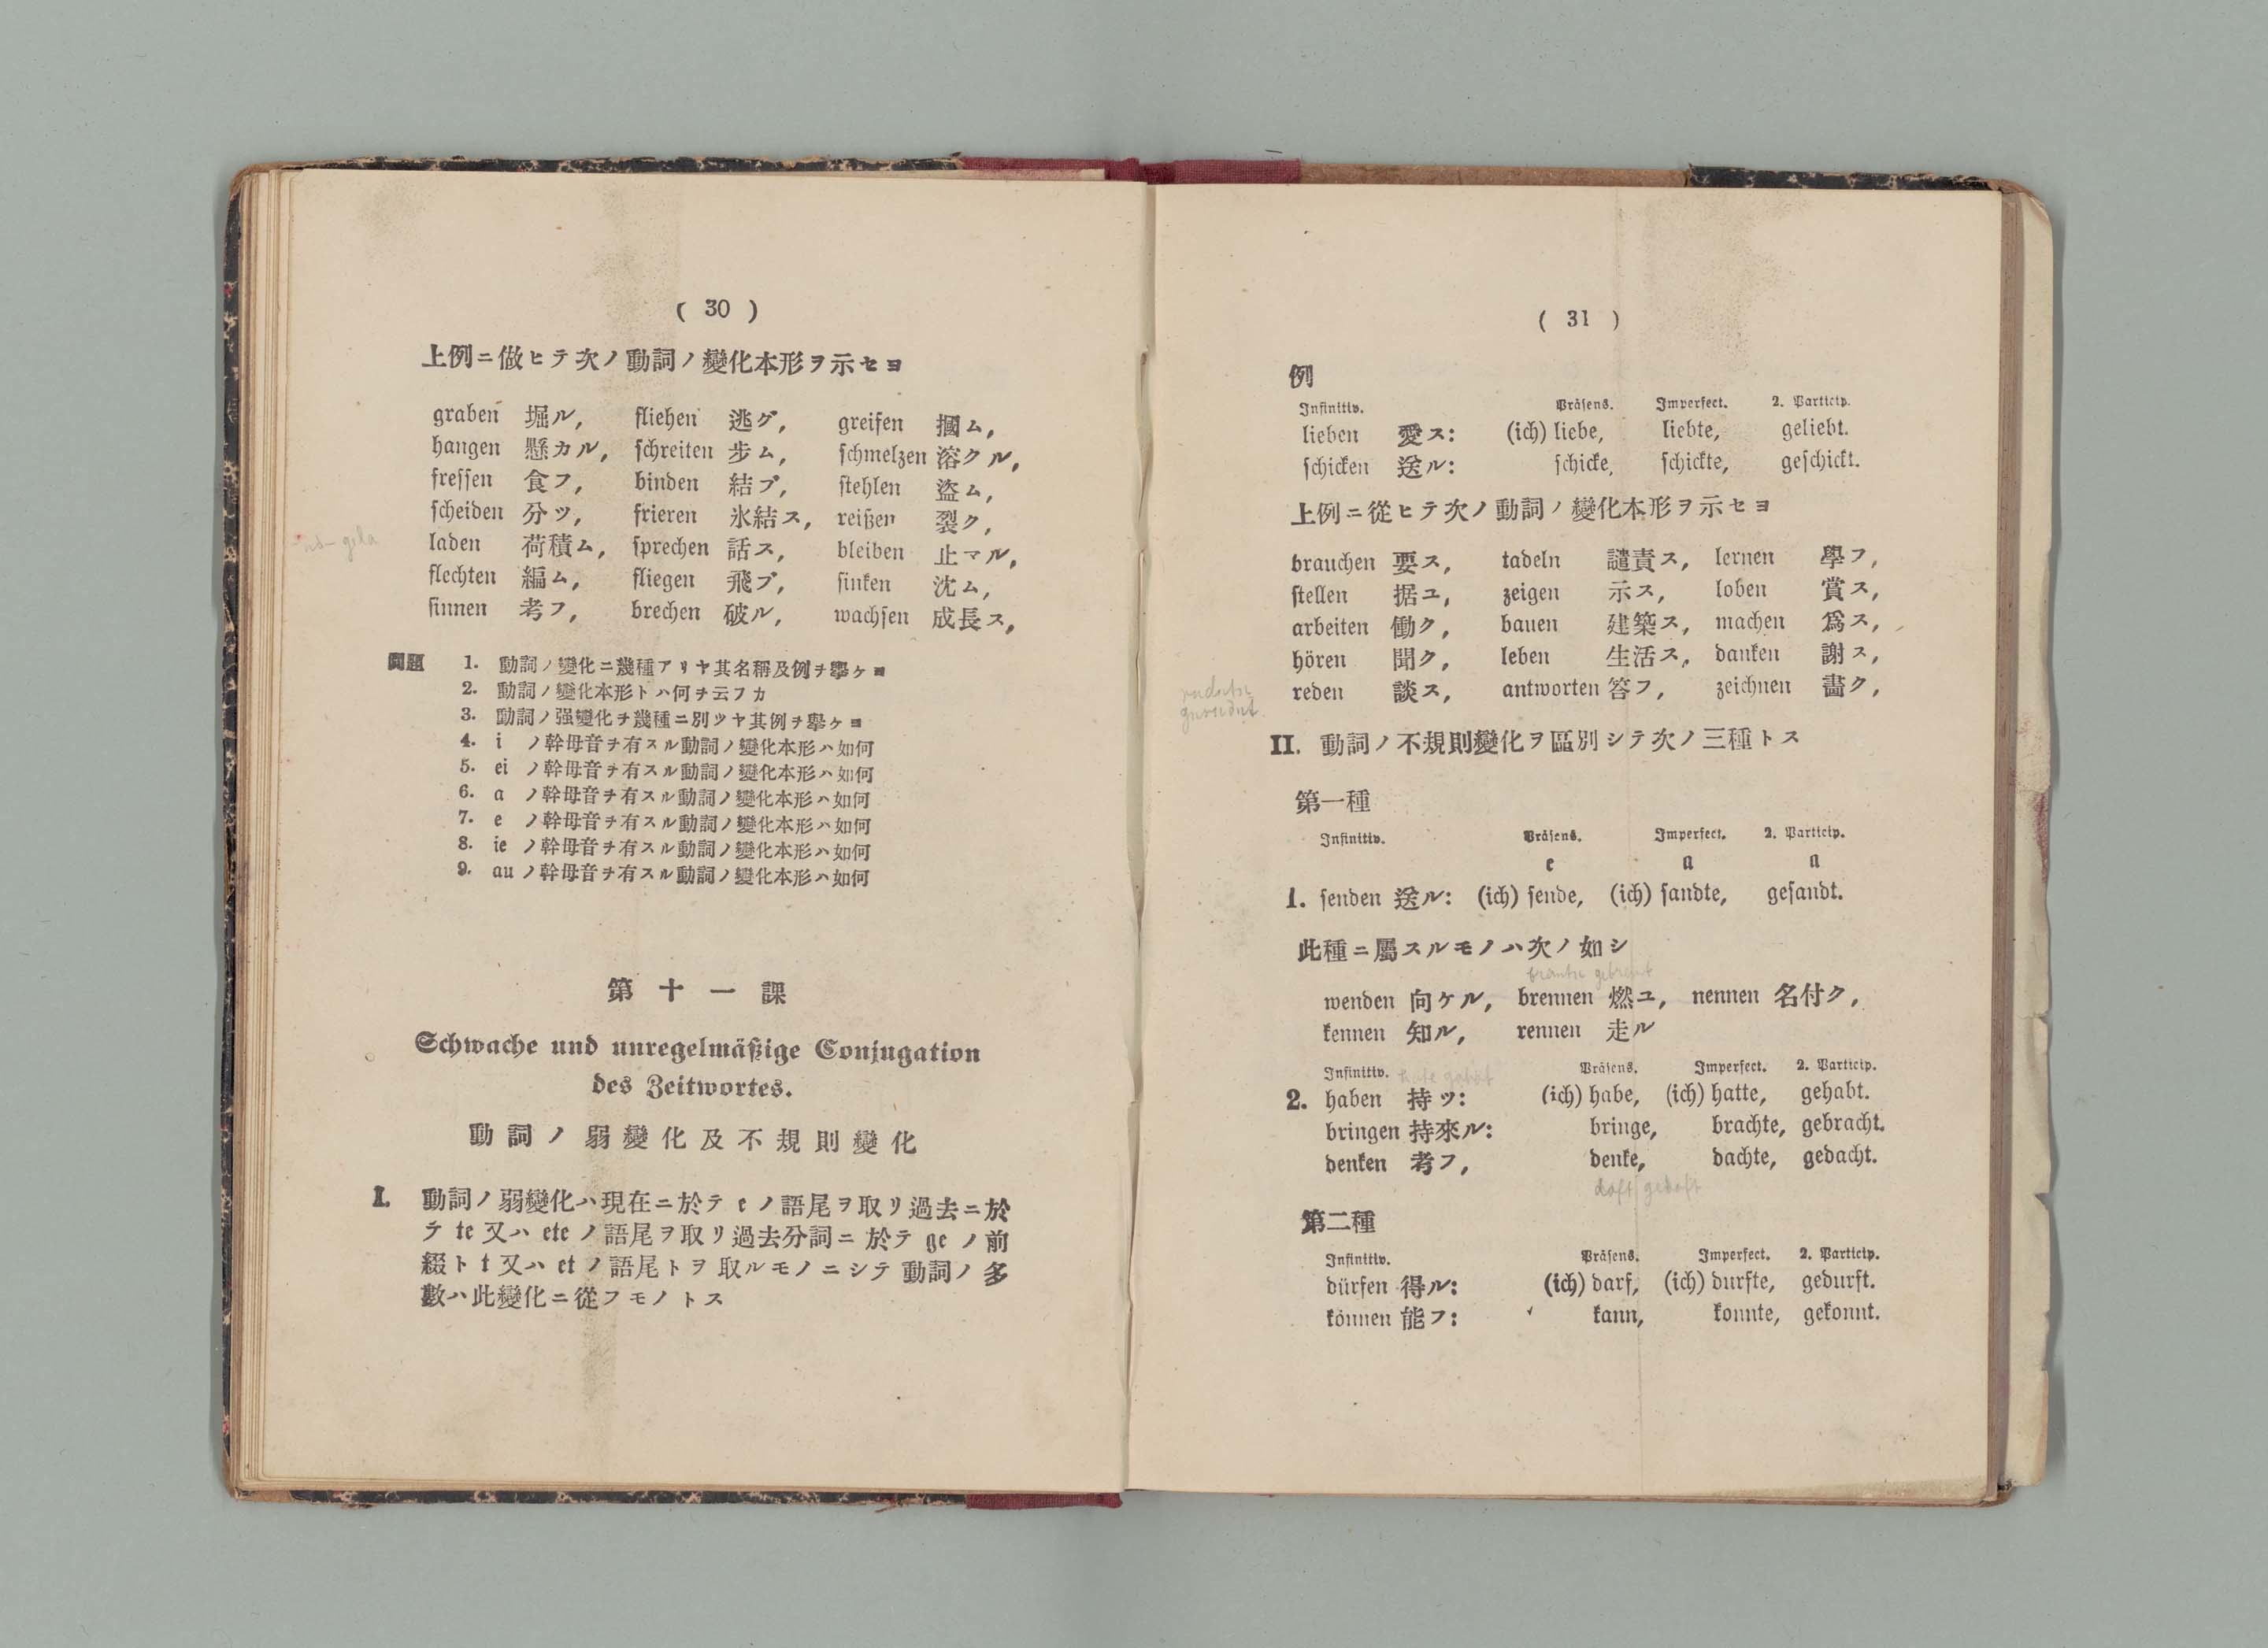 ( 30 )
上例ニ倣ヒテ次ノ動詞ノ變化本形ヲ示セヨ
graben 堀ル, fliehen 逃グ, greifen 摑ム,
hangen 懸カル, schreiten 步ム, schmelzen 溶クル,
fressen 食フ, binden 結ブ, stehlen 盜ム,
scheiden 分ツ, frieren 氷結ス, reißen 裂ク,
laden 荷積ム, sprechen 話ス, bleiben 止マル,
flechten 編ム, fliegen 飛ブ, sinken 沈ム,
sinnen 考フ, brechen 破ル, wachsen 成長ス,
問題 1. 動詞ノ變化ニ幾種アリヤ其名稱及例ヲ擧ケヨ
2. 動詞ノ變化本形トハ何ヲ云フカ
3. 動詞ノ强變化ヲ幾種ニ別ツヤ其例ヲ擧ケヨ
4. i ノ幹母音ヲ有スル動詞ノ變化本形ハ如何
5. ei ノ幹母音ヲ有スル動詞ノ變化本形ハ如何
6. a ノ幹母音ヲ有スル動詞ノ變化本形ハ如何
7. e ノ幹母音ヲ有スル動詞ノ變化本形ハ如何
8. ie ノ幹母音ヲ有スル動詞ノ變化本形ハ如何
9. au ノ幹母音ヲ有スル動詞ノ變化本形ハ如何
第十一課
Schwache und unregelmäßige Conjugation
des Zeitwortes.
動詞ノ弱變化及不規則變化
I. 動詞ノ弱變化ハ現在ニ於テ e ノ語尾ヲ取リ過去ニ於
テ te 又ハ ete ノ語尾ヲ取リ過去分詞ニ於テ ge ノ前
綴ト t 又ハ et ノ語尾トヲ取ルモノニシテ動詞ノ多
數ハ此變化ニ從フモノトス
( 31 )
例
Infinitiv. Präsens. Imperfect. 2. Particip.
lieben 愛ス: (ich) liebe, liebte, geliebt.
schicken 送ル: schicke, schickte, geschickt.
上例ニ從ヒテ次ノ動詞ノ變化本形ヲ示セヨ
brauchen 要ス, tadeln 譴責ス, lernen 學フ,
stellen 据ユ, zeigen 示ス, loben 賞ス,
arbeiten 働ク, bauen 建築ス, machen 爲ス,
hören 聞ク, leben 生活ス, danken 謝ス,
reden 談ス, antworten 答フ, zeichnen 畵ク,
II. 動詞ノ不規則變化ヲ區別シテ次ノ三種トス
第一種
Infinitiv. Präsens. Imperfect. 2. Particip.
e a a
1. senden 送ル: (ich) sende, (ich) sandte, gesandt.
此種ニ屬スルモノハ次ノ如シ
wenden 向ケル, brennen 燃ユ, nennen 名付ク,
kennen 知ル, rennen 走ル
Infinitiv. Präsens. Imperfect. 2. Particip.
2. haben 持ツ: (ich) habe, (ich) hatte, gehabt.
bringen 持來ル: bringe, brachte, gebracht.
denken 考フ, denke, dachte, gedacht.
第二種
Infinitiv. Präsens. Imperfect. 2. Particip.
dürfen 得ル: (ich) darf, (ich) durfte, gedurft.
können 能フ: kann, konnte, gekonnt.